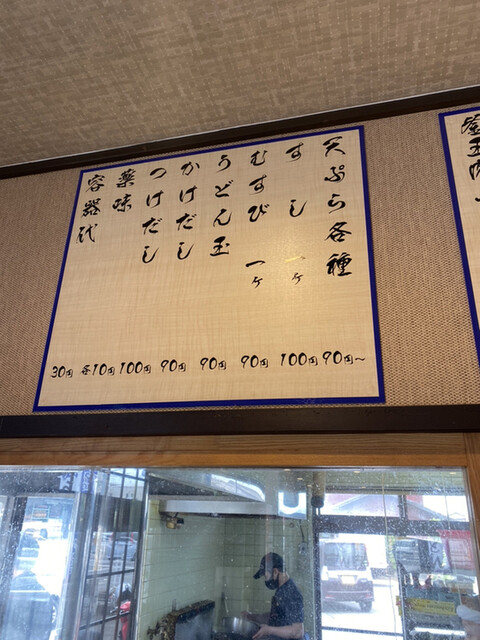 天ぷら各種 90円〜
すし 一ヶ 100円
むすび 一ヶ 90円
うどん玉 90円
かけだし 90円
つけだし 100円
薬味 各10円
容器代 30円
釜玉肉